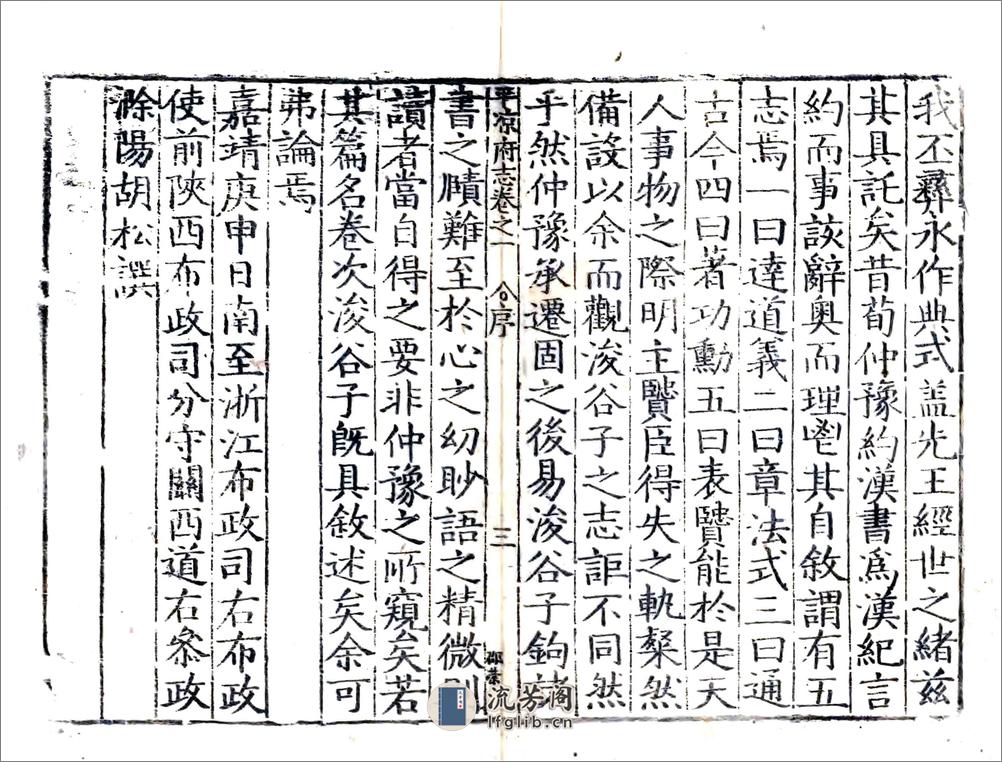 我丕彝永作典式盖先王經世之緒兹
其具託矣昔荀仲豫約漢書爲漢紀言
約而事該辭奥而理鬯其自敘謂有五
志焉一曰達道義二曰章法式三曰通
古今四曰著功勳五曰表賢能於是天
人事物之際明主賢臣得失之軌粲然
備設以余而觀浚谷子之志詎不同然
乎然仲豫承遷固之後易浚谷子鉤
平凉府志卷之一 序 三
書之賾難至於心之幼眇語之精微則
讀者當自得之要非仲豫之所窺矣若
其篇名卷次浚谷子旣具敘述矣余可
弗論焉
嘉靖庚申日南至浙江布政司右布政
使前陝西布政司分守關西道右叅政
滁陽胡松譔
流芳阁
lfglib.cn